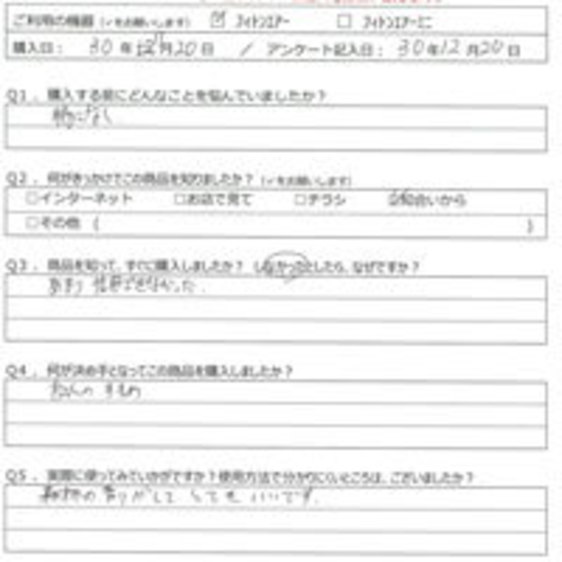 ご利用の機器（✓をお願いします） ☑ フィトンエアー □ フィトンエアーミニ
購入日： 30年 11月20日 ／ アンケート記入日： 30年12月20日
Q1．購入する前にどんなことを悩んでいましたか？
特になし
Q2．何がきっかけでこの商品を知りましたか？（✓をお願いします）
□インターネット □お店で見て □チラシ ☑知合いから
□その他（ ）
Q3．商品を知って、すぐに購入しましたか？ しなかったとしたら、なぜですか？
あまり 信用できなかった．
Q4．何が決め手となってこの商品を購入しましたか？
すすめ
Q5．実際に使ってみていかがですか？使用方法で分かりにくいところは、ございましたか？
の香りがして とても いいです．